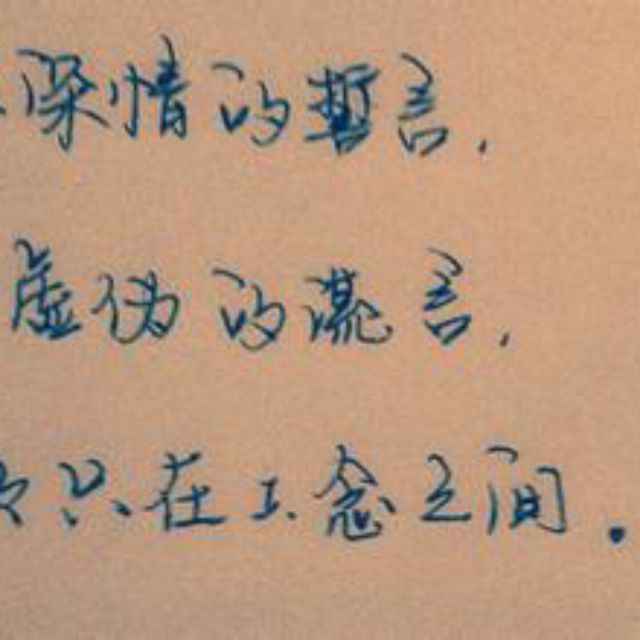 深情的誓言，
虚伪的谎言，
只在一念之间.